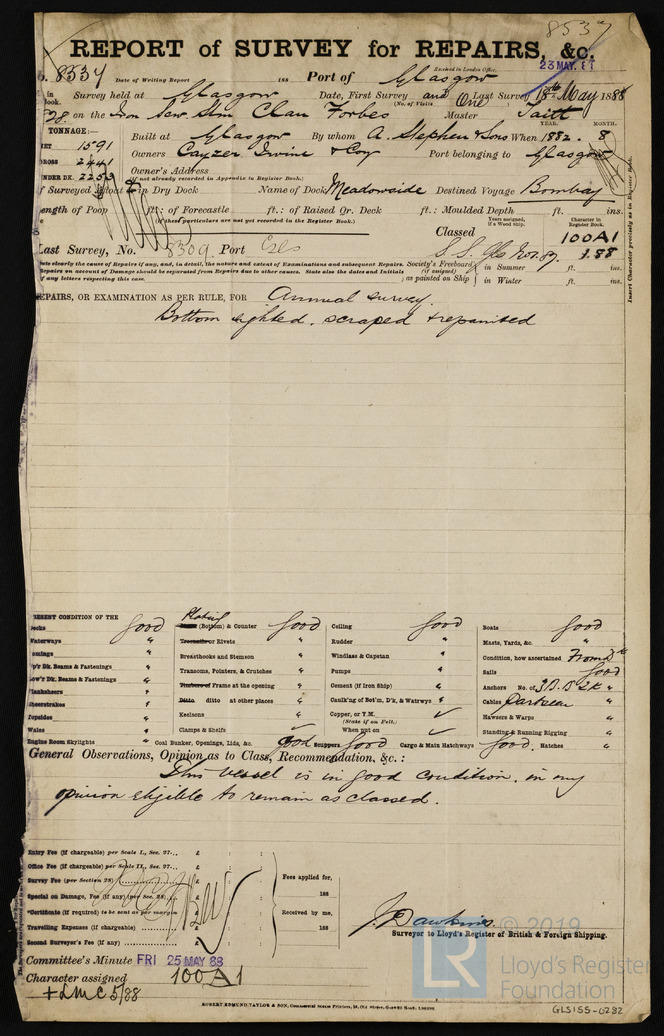 8537
REPORT of SURVEY for REPAIRS, &c.
Received in London Office,
23 MAY. 8
8537 Date of Writing Report 188 Port of Glasgow
in Survey held at Glasgow Date, First Survey and Last Survey 18th May 1888
ook. (No. of Visits One)
28. on the Iron Screw Stm Clan Forbes Master Taitt
TONNAGE:— YEAR. MONTH.
ET 1591 Built at Glasgow By whom A. Stephen & Sons When 1882. 8
ROSS 2441 Owners Cayzer Irvine & Coy Port belonging to Glasgow
UNDER DK. 2253 Owner's Address
(if not already recorded in Appendix to Register Book.)
f Surveyed Afloat or in Dry Dock Name of Dock Meadowside Destined Voyage Bombay
ength of Poop ft.: of Forecastle ft.: of Raised Qr. Deck ft.: Moulded Depth ft. ins.
(if these particulars are not yet recorded in the Register Book.)
Years assigned, if a Wood ship. Character in Register Book.
Classed 100A1
Last Survey, No. 8309 Port Gls S.S. Gls Nov. 87. 3.88
Insert Character precisely as in Register Book.
Repairs on account of Damage should be separated from Repairs due to other causes. State also the dates and Initials
f any letters respecting this case.
Society's Freeboard (if assigned) as painted on Ship } in Summer ft. ins.
in Winter ft. ins.
EPAIRS, OR EXAMINATION AS PER RULE, FOR Annual survey.
Bottom sighted, scraped & repainted
RESENT CONDITION OF THE
ecks good
Waterways "
omings "
Up'r Dk. Beams & Fastenings "
Low'r Dk. Beams & Fastenings "
Planksheers "
Sheerstrakes "
Topsides "
Wales "
Engine Room Skylights "
Plating (Bottom) & Counter good
Treenails or Rivets "
Breasthooks and Stemson "
Transoms, Pointers, & Crutches "
Timbers or Frame at the opening "
Ditto ditto at other places "
Keelsons "
Clamps & Shelfs ✓
Coal Bunker, Openings, Lids, &c. good
Ceiling good
Rudder "
Windlass & Capstan "
Pumps "
Cement (if Iron Ship) "
Caulk'g of Bot'm, D'k, & Watrwys "
Copper, or Y.M. ✓
(State if on Felt.)
When put on ✓
Scuppers good Cargo & Main Hatchways good
Boats good
Masts, Yards, &c. "
Condition, how ascertained From dk
Sails good
Anchors No. of 3 B. S & K "
Cables "
Hawsers & Warps "
Standing & Running Rigging "
Hatches "
General Observations, Opinion as to Class, Recommendation, &c. :
This vessel is in good condition, in my
opinion eligible to remain as classed.
Entry Fee (if chargeable) per Scale I., Sec. 27... £ : :
Office Fee (if chargeable) per Scale II., Sec. 27.. £ : :
Survey Fee (per Section 28) £ : :
Special on Damage, Fee (if any) (per Sec. 28) : £ : :
*Certificate (if required) to be sent as per margin £ : :
Travelling Expenses (if chargeable) £ : :
Second Surveyor's Fee (if any) £ : :
Fees applied for,
188
Received by me,
188
J. Dawkins.
Surveyor to Lloyd's Register of British & Foreign Shipping.
Committee's Minute FRI 25 MAY 88
Character assigned 100A1
+LMC 5/88
ROBERT EDMUND TAYLOR & SON, Commercial Steam Printers, 19, Old Street, Goswell Road, London
© 2019
LR
Lloyd's Register
Foundation
GLS155-0282